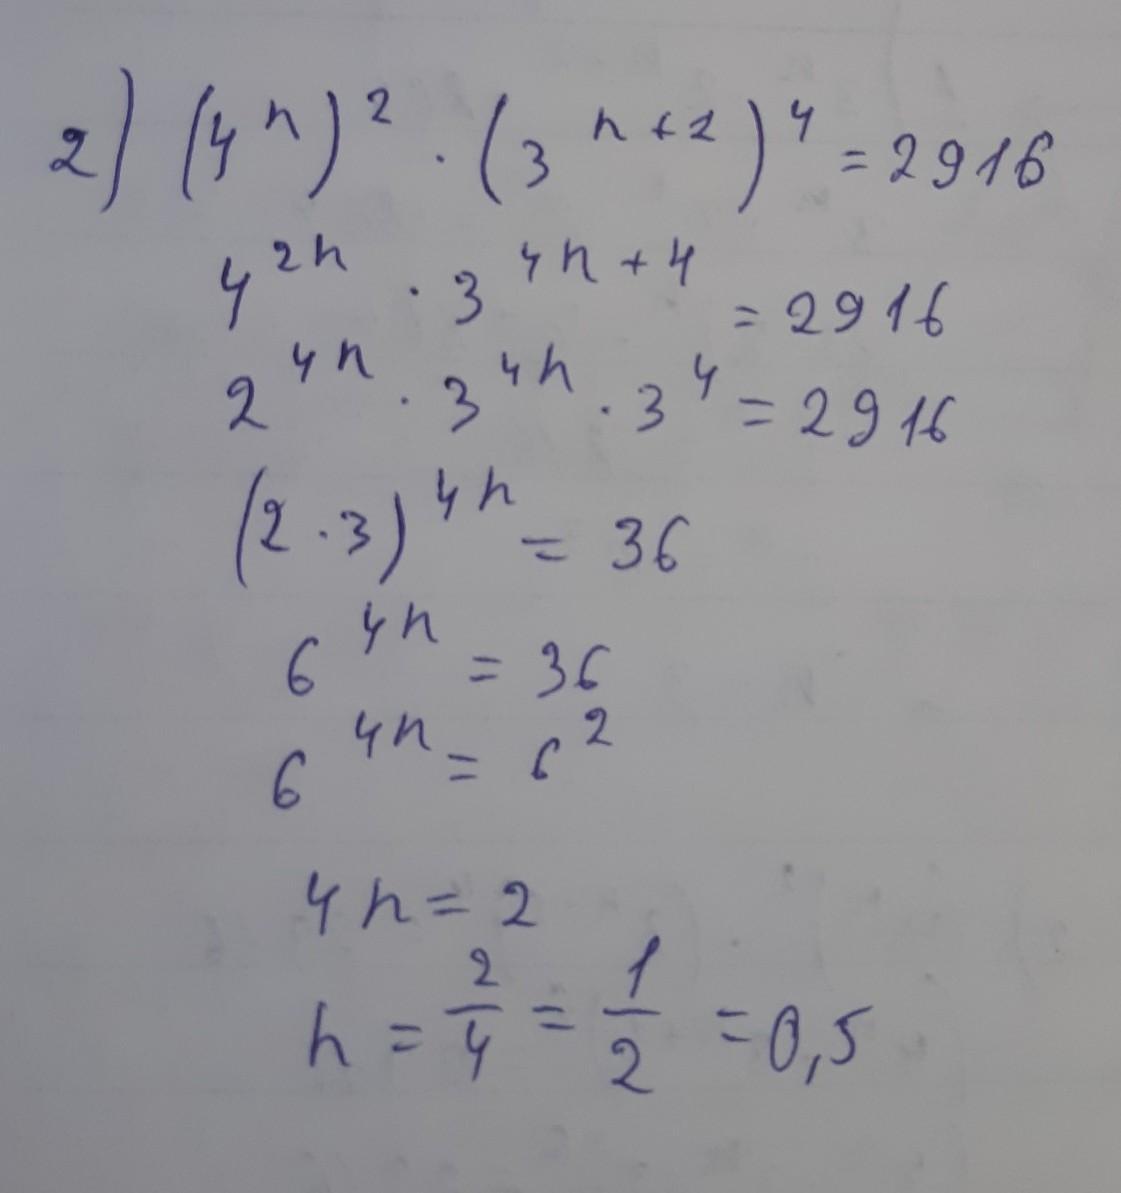 2) (4^n)^2 · (3^{n+2})^4 = 2916
4^{2n} · 3^{4n+4} = 2916
2^{4n} · 3^{4n} · 3^4 = 2916
(2·3)^{4n} = 36
6^{4n} = 36
6^{4n} = 6^2
4n = 2
n = 2/4 = 1/2 = 0,5